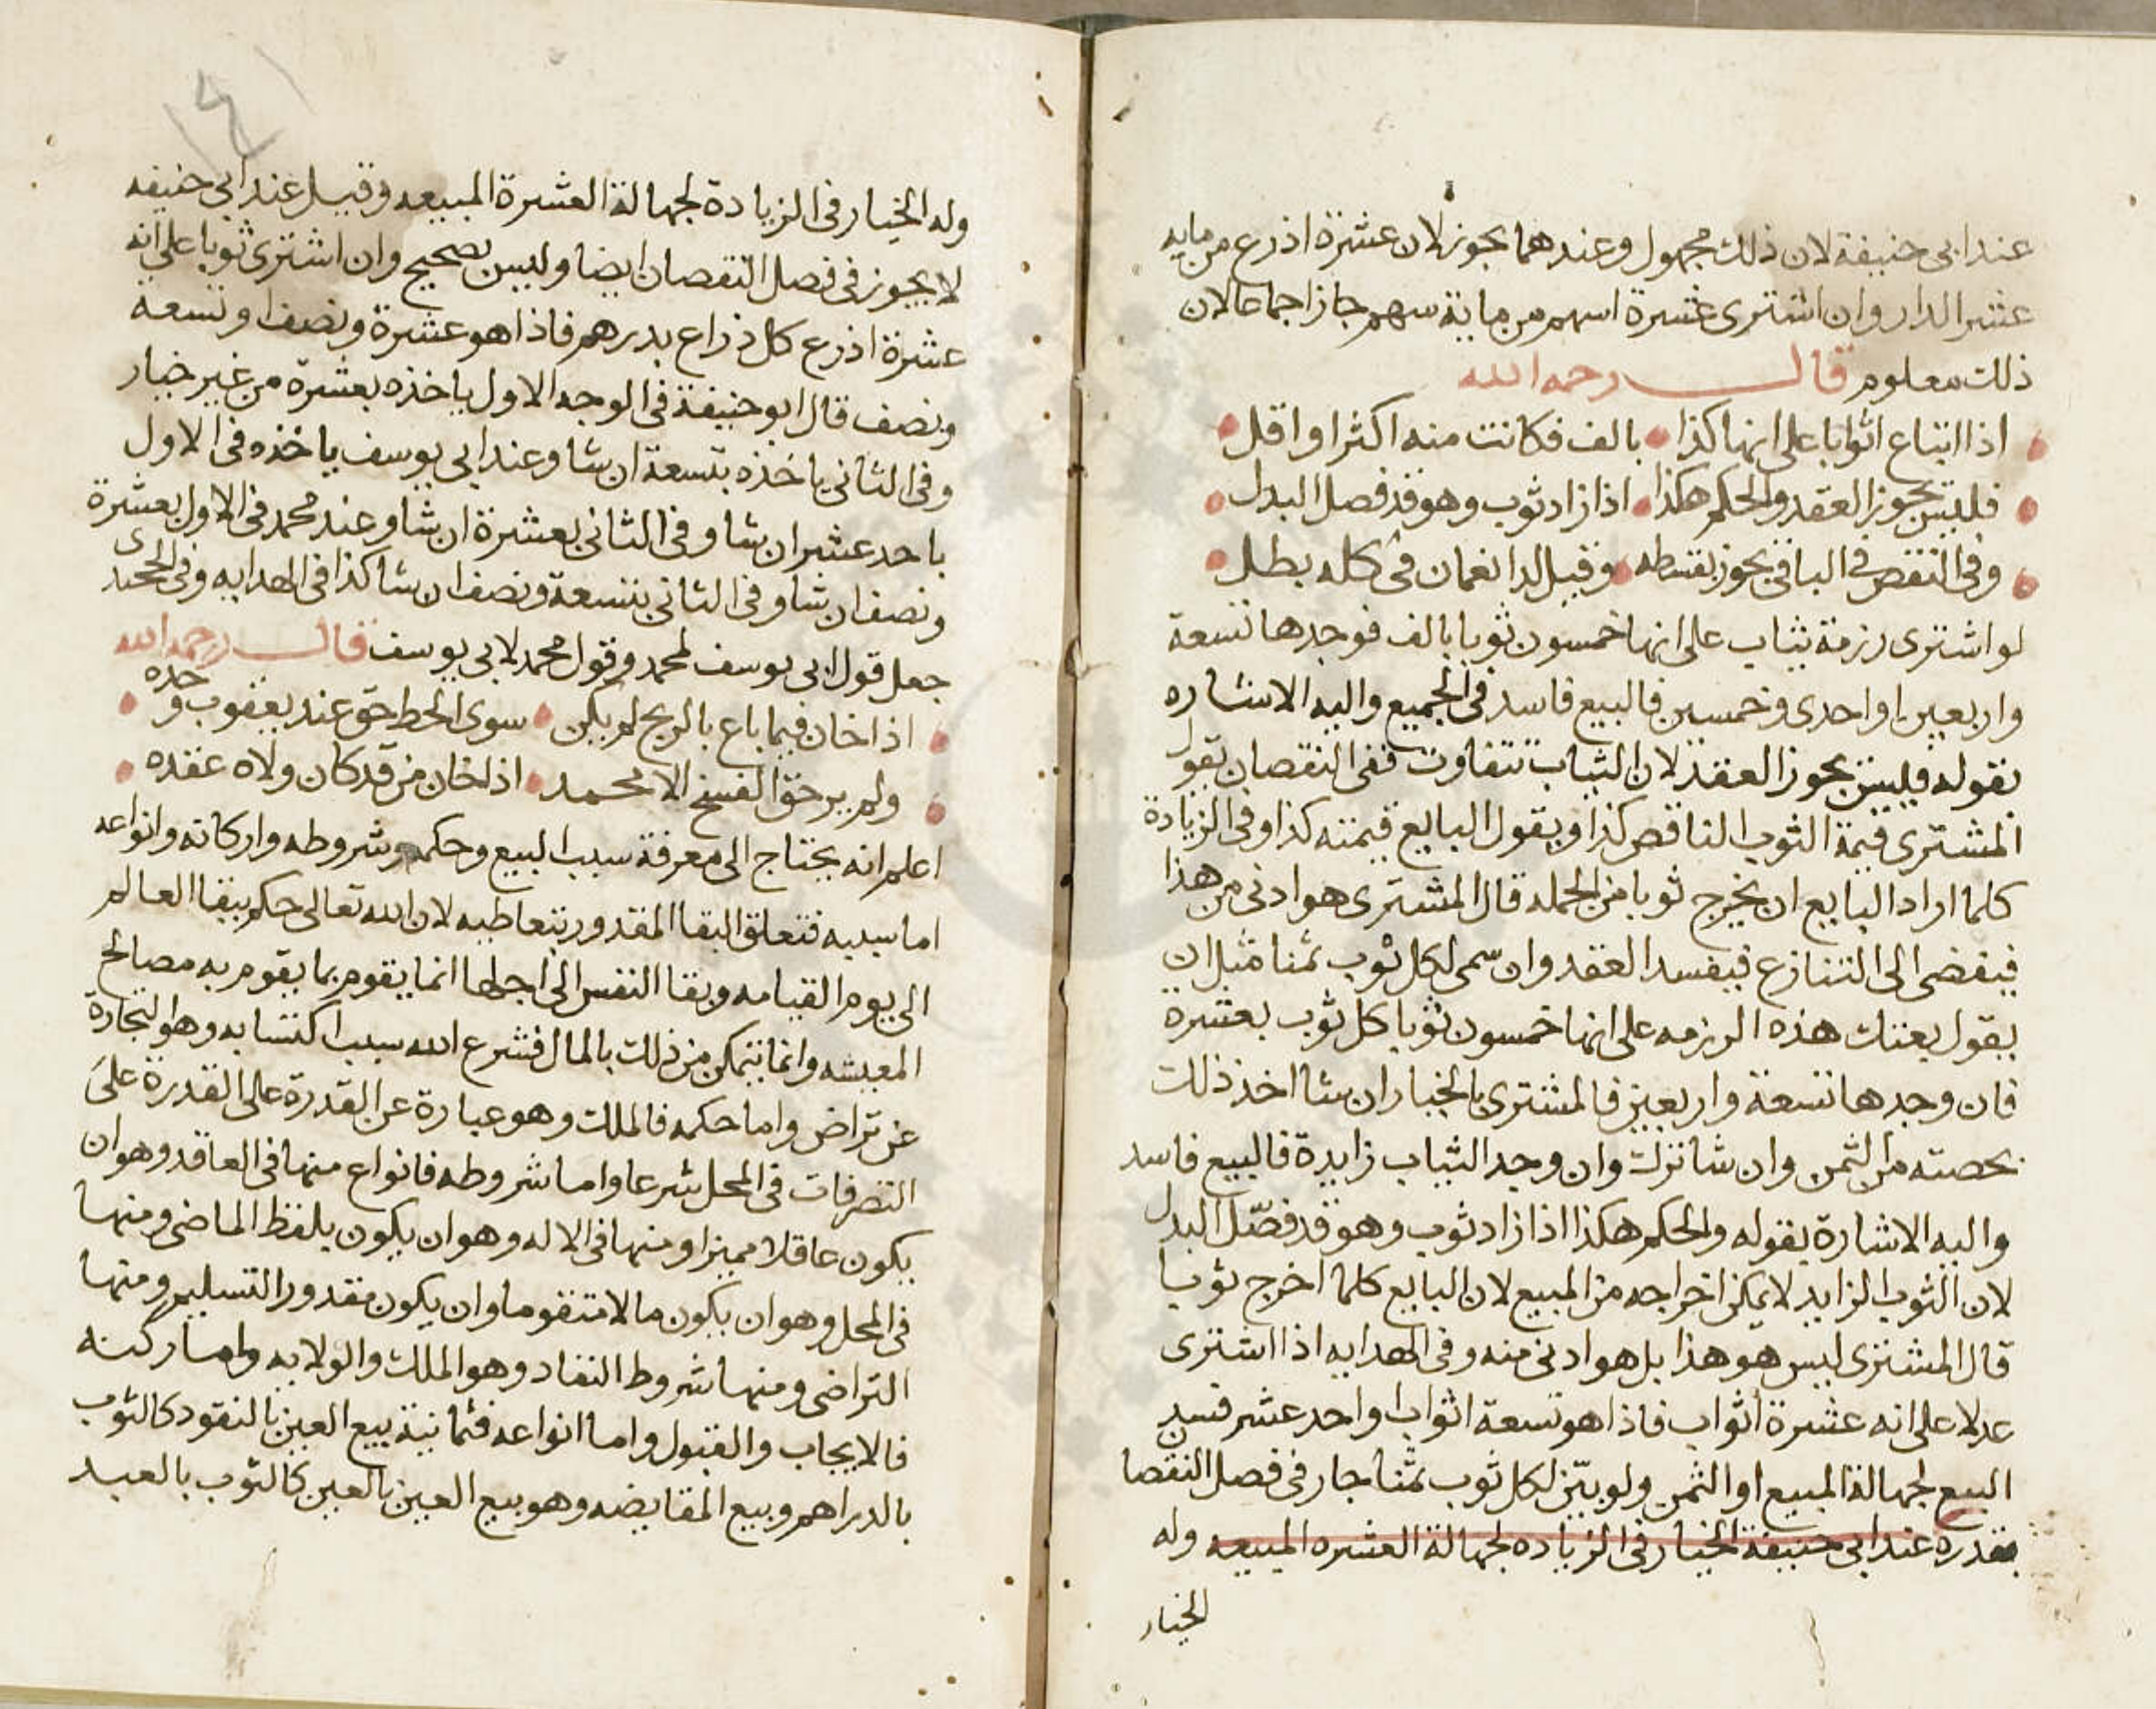 عند ابى حنيفة لان ذلك مجهول وعندهما يجوز لان عشرة اذرع من مايه
عشر الدار وان اشترى عشرة اسهم من ماية سهم جاز اجماعا لان
ذلك معلوم قال رحمه الله
اذا ابتاع اثوابا على انها كذا بالف فكانت منه اكثر او اقل
فليس يجوز العقد والحكم هكذا اذا زاد ثوب وهو قد فصل البدل
وفى النقص فى الباقى يجوز بقسطه وقيل لدا نعمان فى كله بطل
لو اشترى رزمة ثياب على انها خمسون ثوبا بالف فوجدها تسعة
واربعين او احدى وخمسين فالبيع فاسد فى الجميع واليه الاشاره
بقوله فليس يجوز العقد لان الثياب تتفاوت ففى النقصان يقول
المشترى قيمة الثوب الناقص كذا ويقول البايع قيمته كذا وفى الزيادة
كلما اراد البايع ان يخرج ثوبا من الجمله قال المشترى هو ادنى من هذا
فيفضى الى التنازع فيفسد العقد وان سمى لكل ثوب ثمنا مثل ان
يقول بعتك هذه الرزمه على انها خمسون ثوبا كل ثوب بعشرة
فان وجدها تسعة واربعين فالمشترى بالخيار ان شا اخذ ذلك
بحصته من الثمن وان شا ترك وان وجد الثياب زايدة فالبيع فاسد
واليه الاشارة بقوله والحكم هكذا اذا زاد ثوب وهو قد فصّل البدل
لان الثوب الزايد لا يمكن اخراجه من المبيع لان البايع كلما اخرج ثوبا
قال المشترى ليس هو هذا بل هو ادنى منه وفى الهدايه اذا اشترى
عدلا على انه عشرة أثواب فاذا هو تسعة اثواب او احد عشر فسد
البيع لجهالة المبيع او الثمن ولو بيّن لكل ثوب ثمنا جاز فى فصل النقصا
بقدره عند ابى حنيفة الخيار فى الزياده لجهالة العشره المبيعه وله
الخيار
وله الخيار فى الزيادة لجهالة العشرة المبيعه وقيل عند ابى حنيفه
لا يجوز فى فصل النقصان ايضا وليس بصحيح وان اشترى ثوبا على انه
عشرة اذرع كل ذراع بدرهم فاذا هو عشرة ونصف او تسعة
ونصف قال ابو حنيفة فى الوجه الاول ياخذه بعشرة من غير خيار
وفى الثانى ياخذه بتسعة ان شا وعند ابى يوسف ياخذه فى الاول
باحد عشر ان شا وفى الثانى بعشرة ان شا وعند محمد فى الاول بعشرة
ونصف ان شا وفى الثانى بتسعة ونصف ان شا كذا فى الهدايه وفى
جعل قول ابى يوسف لمحمد وقول محمد لابى يوسف قال رحمه الله
اذا خان فيما باع بالربح لم يكن سوى الحط حق عند يعقوب وحده
ولم ير حق الفسخ الا محمد اذا خان من قد كان ولاه عقده
اعلم انه يحتاج الى معرفة سبب البيع وحكمه وشروطه واركانه وانواعه
اما سببه فتعلق البقا المقدور بتعاطيه لان الله تعالى حكم ببقا العالم
الى يوم القيامه وبقا النفس الى اجلها انما يقوم بما يقوم به مصالح
المعيشه وانما يتمكن من ذلك بالمال فشرع الله سبب اكتسابه وهو التجارة
عن تراض واما حكمه فالملك وهو عبارة عن القدرة على القدرة على
التصرفات فى المحل شرعا واما شروطه فانواع منها فى العاقد وهو ان
يكون عاقلا مميزا ومنها فى الاله وهو ان يكون بلفظ الماضى ومنها
فى المحل وهو ان يكون مالا متقوما وان يكون مقدور التسليم ومنها
التراضى ومنها شروط النفاد وهو الملك والولايه واما ركنه
فالايجاب والقبول واما انواعه فثمانية بيع العين بالنقود كالثوب
بالدراهم وبيع المقايضه وهو بيع العين بالعين كالثوب بالعبد